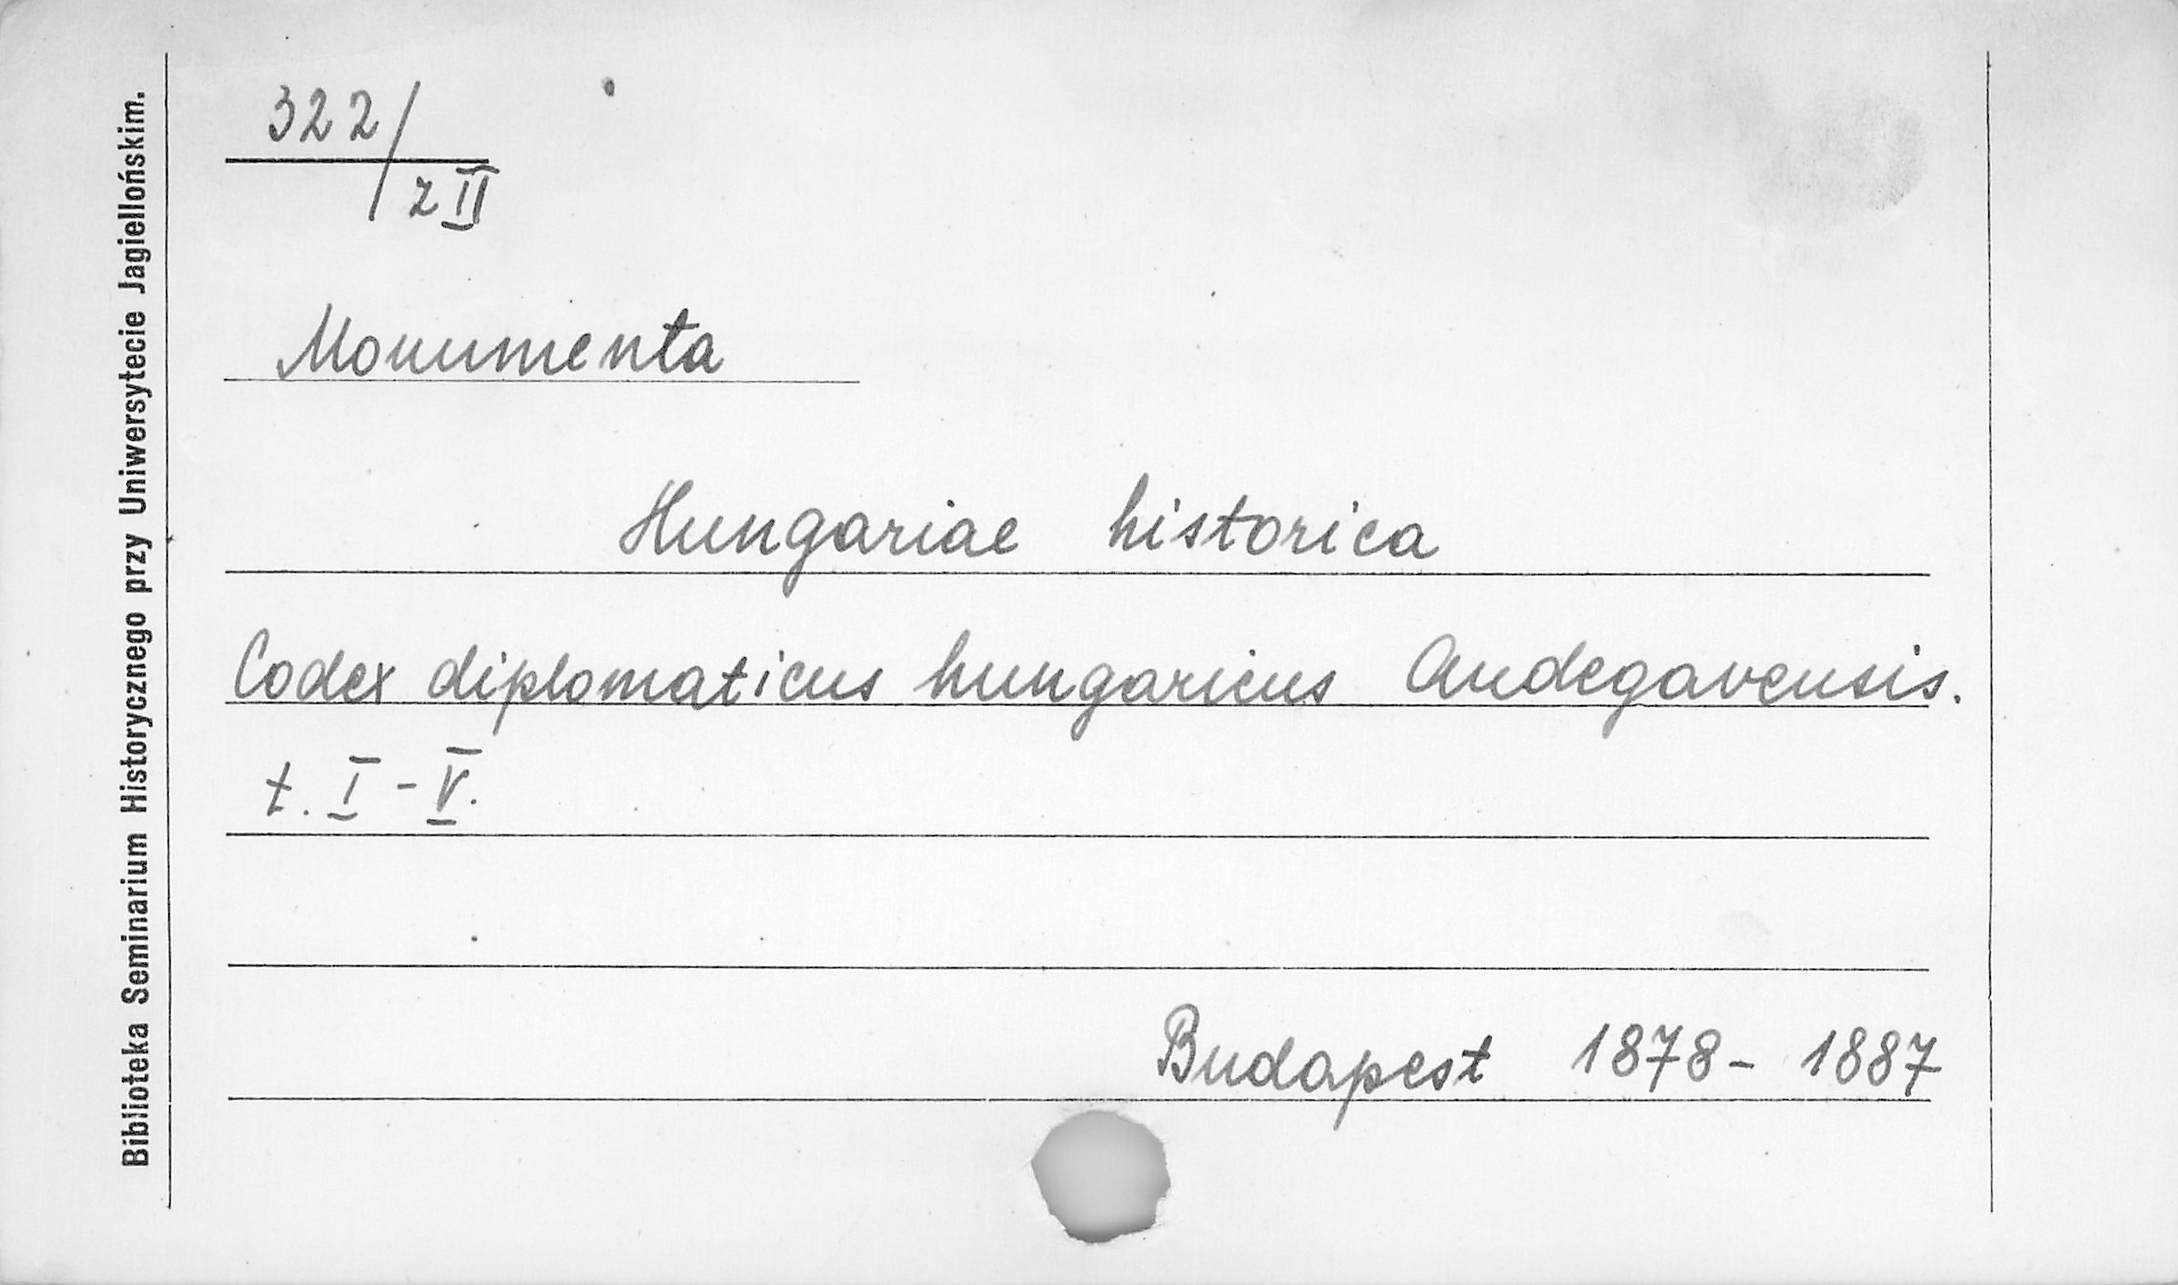 Biblioteka Seminarium Historycznego przy Uniwersytecie Jagiellońskim.
322/
z II
Monumenta
Hungariae historica
Codex diplomaticus hungaricus Andegavensis.
t. I - V.
Budapest 1878 - 1887